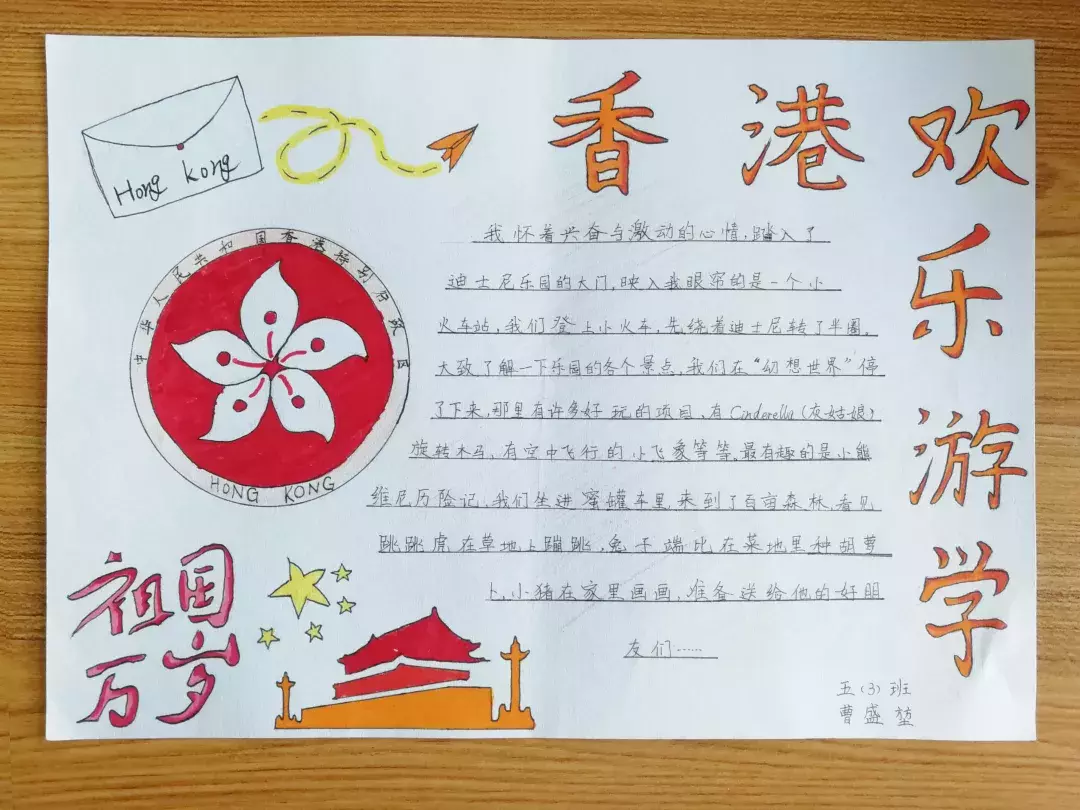 香港欢
乐
游
学
Hong Kong
中华人民共和国香港特别行政区
HONG KONG
我怀着兴奋与激动的心情,踏入了
迪士尼乐园的大门,映入我眼帘的是一个小
火车站,我们登上小火车,先绕着迪士尼转了半圈,
大致了解一下乐园的各个景点,我们在“幻想世界”停
了下来,那里有许多好玩的项目,有Cinderella(灰姑娘)
旋转木马,有空中飞行的小飞象等等。最有趣的是小熊
维尼历险记,我们坐进蜜罐车里,来到了百亩森林,看见
跳跳虎在草地上蹦跳,兔子瑞比在菜地里种胡萝
卜,小猪在家里画画,准备送给他的好朋
友们……
祖国
万岁
五(3)班
曹盛堃